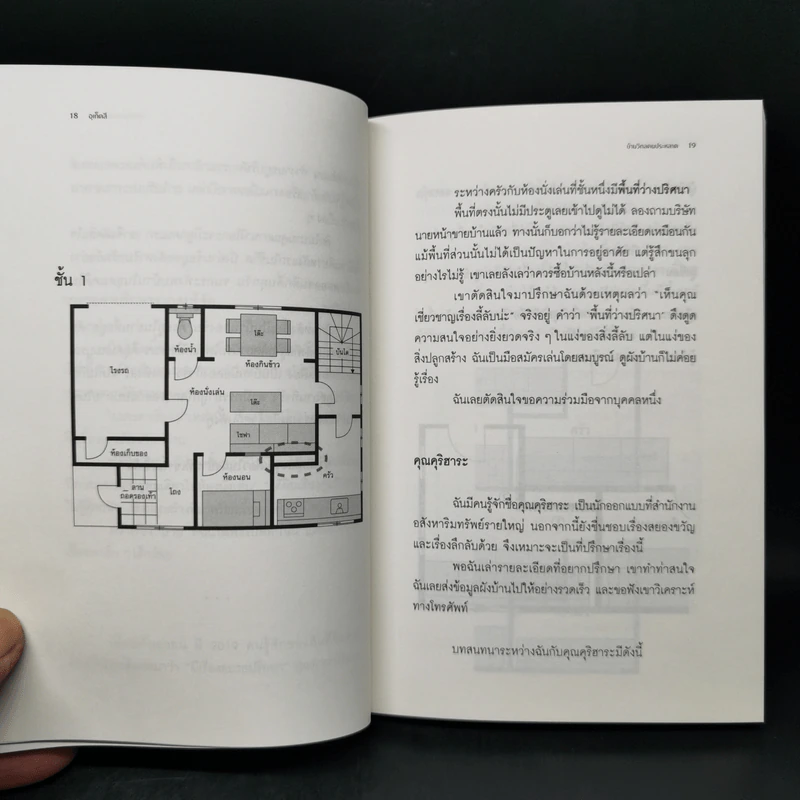 18 อุเก็ตสึ
ชั้น 1
โรงรถ
ห้องน้ำ
โต๊ะ
ห้องกินข้าว
บันได
ห้องนั่งเล่น
โต๊ะ
โซฟา
ห้องเก็บของ
ลาน
ถอดรองเท้า
โถง
ห้องนอน
ครัว
บ้านวิกลคนประหลาด 19
ระหว่างครัวกับห้องนั่งเล่นที่ชั้นหนึ่งมีพื้นที่ว่างปริศนา
พื้นที่ตรงนั้นไม่มีประตูเลยเข้าไปดูไม่ได้ ลองถามบริษัท
นายหน้าขายบ้านแล้ว ทางนั้นก็บอกว่าไม่รู้รายละเอียดเหมือนกัน
แม้พื้นที่ส่วนนั้นไม่ได้เป็นปัญหาในการอยู่อาศัย แต่รู้สึกขนลุก
อย่างไรไม่รู้ เขาเลยลังเลว่าควรซื้อบ้านหลังนี้หรือเปล่า
เขาตัดสินใจมาปรึกษาฉันด้วยเหตุผลว่า “เห็นคุณ
เชี่ยวชาญเรื่องลี้ลับน่ะ” จริงอยู่ คำว่า ‘พื้นที่ว่างปริศนา’ ดึงดูด
ความสนใจอย่างยิ่งยวดจริง ๆ ในแง่ของสิ่งลี้ลับ แต่ในแง่ของ
สิ่งปลูกสร้าง ฉันเป็นมือสมัครเล่นโดยสมบูรณ์ ดูผังบ้านก็ไม่ค่อย
รู้เรื่อง
ฉันเลยตัดสินใจขอความร่วมมือจากบุคคลหนึ่ง
คุณคุริฮาระ
ฉันมีคนรู้จักชื่อคุณคุริฮาระ เป็นนักออกแบบที่สำนักงาน
อสังหาริมทรัพย์รายใหญ่ นอกจากนี้ยังชื่นชอบเรื่องสยองขวัญ
และเรื่องลึกลับด้วย จึงเหมาะจะเป็นที่ปรึกษาเรื่องนี้
พอฉันเล่ารายละเอียดที่อยากปรึกษา เขาทำท่าสนใจ
ฉันเลยส่งข้อมูลผังบ้านไปให้อย่างรวดเร็ว และขอฟังเขาวิเคราะห์
ทางโทรศัพท์
บทสนทนาระหว่างฉันกับคุณคุริฮาระมีดังนี้